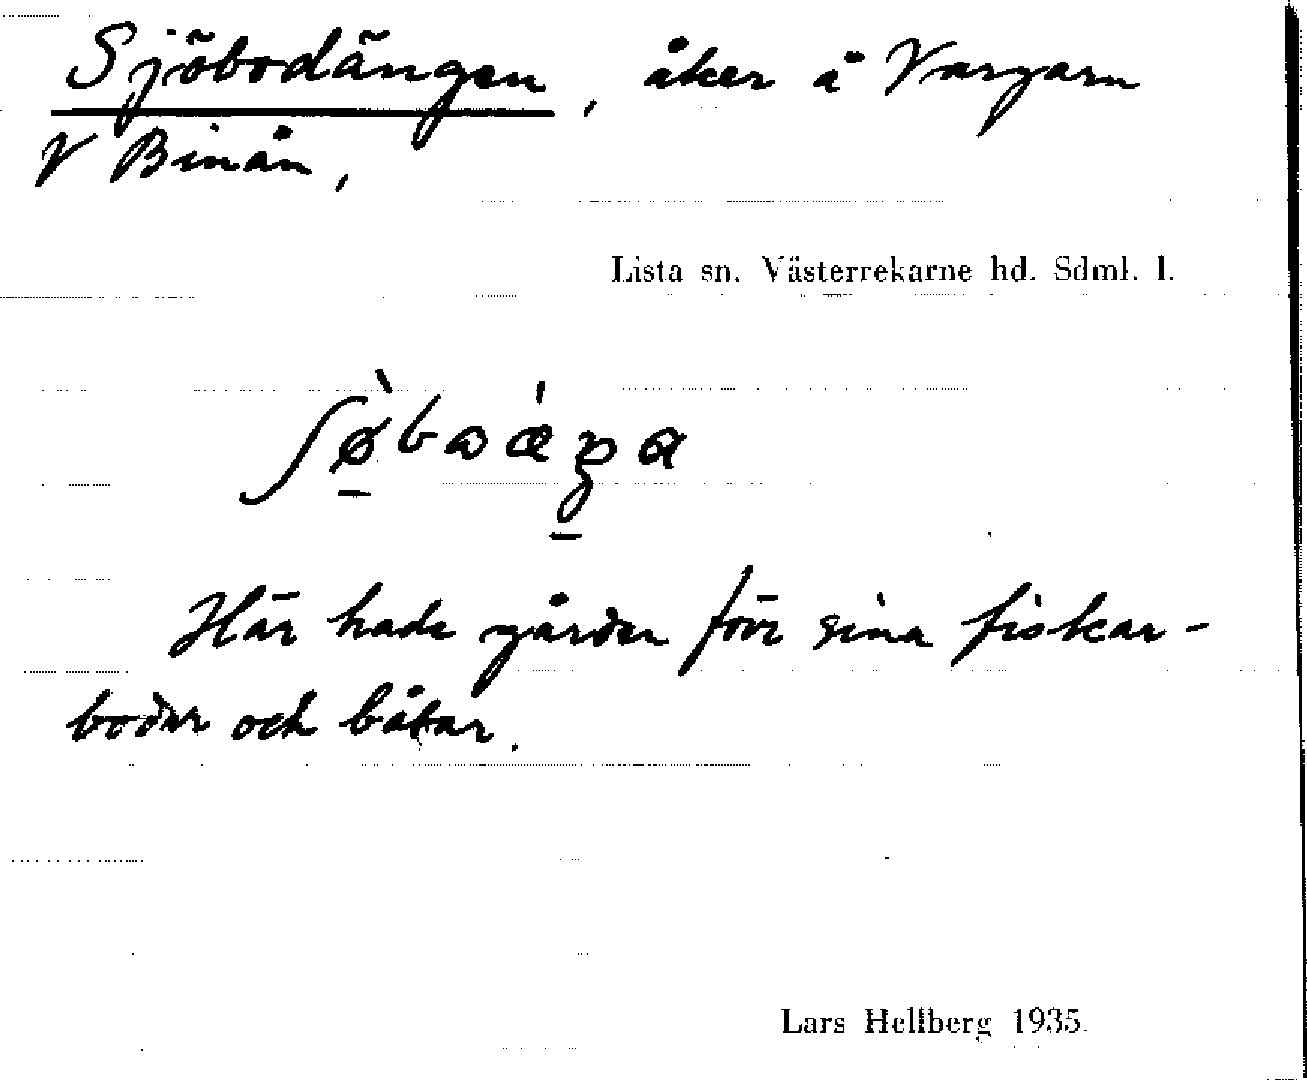 Sjöbodängen, åker å Vargarn
V Binån,
Lista sn. Västerrekarne hd. Sdml. l.
Här hade gården förr sina fiskar-
bodar och båtar.
Lars Hellberg 1935.